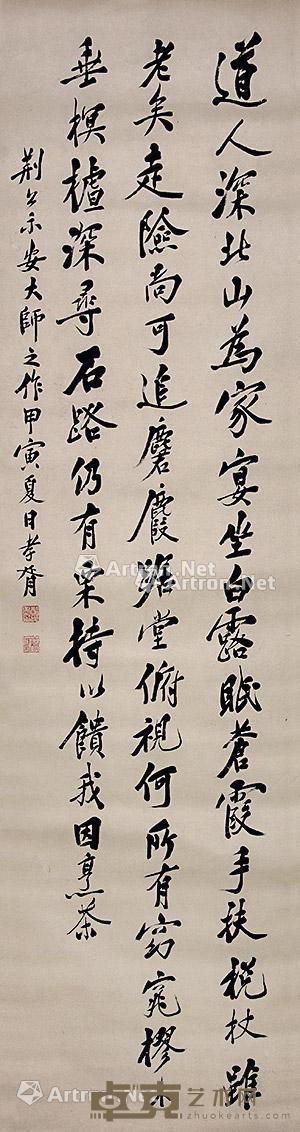 道人深北山為家宴坐白露眠蒼霞手扶棁杖雖
老矣走險尚可追麏麚踞堂俯視何所有窈窕樛木
垂榠樝深尋石路仍有栗持以饋我因烹茶
荆公示安大師之作甲寅夏日孝胥
Artron.Net
AMARTRON
卓克艺术网
zhuokearts.com